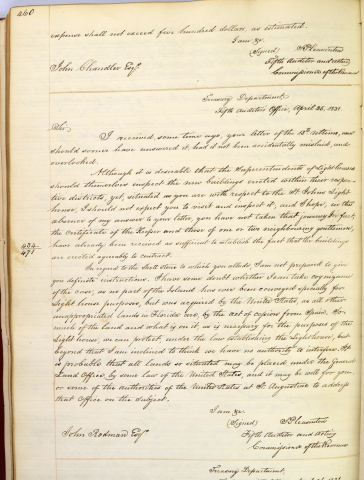 460
expense shall not exceed five hundred dollars, as estimated.
I am &c.
(Signed) S. Pleasonton
Fifth Auditor and acting
Commissioner of the Revenue
John Chandler Esqr.
Treasury Department,
Fifth Auditors Office, April 25, 1831.
Sir,
I received, some time ago, your letter of the 18th ultimo, and
should sooner have answered it, had it not been accidentally mislaid, and
overlooked.
Although it is desirable that the Superintendents of Light houses
should themselves inspect the new buildings erected within their respec-
tive districts, yet, situated as you are with respect to the St Johns Light
house, I should not expect you to visit and inspect it, and I hope, in the
absence of my answer to your letter, you have not taken that journey. In fact,
the Certificate of the Keeper and those of one or two neighbouring gentlemen,
have already been received as sufficient to establish the fact that the buildings
are erected agreeably to contract.
In regard to the Shell Stone to which you allude, I am not prepared to give
you definite instructions. I have some doubt whether I can take cognizance
of the case, as no part of the Island has ever been conveyed specially for
Light house purposes, but was acquired by the United States, as all other
unappropriated lands in Florida were, by the act of cession from Spain. So
much of the land and what is on it, as is necessary for the purposes of the
Light house, we can protect under the law establishing the Lighthouse, but
beyond that I am inclined to think we have no authority to interfere. It
is probable that all lands so situated may be placed under the General
Land Office, by some law of the United States, and it may be well for you
or some of the authorities of the United States at St Augustine to address
that Office on the subject.
I am &c.
(Signed) S. Pleasonton
Fifth Auditor and acting
Commissioner of the Revenue
John Rodman Esqr
Treasury Department,